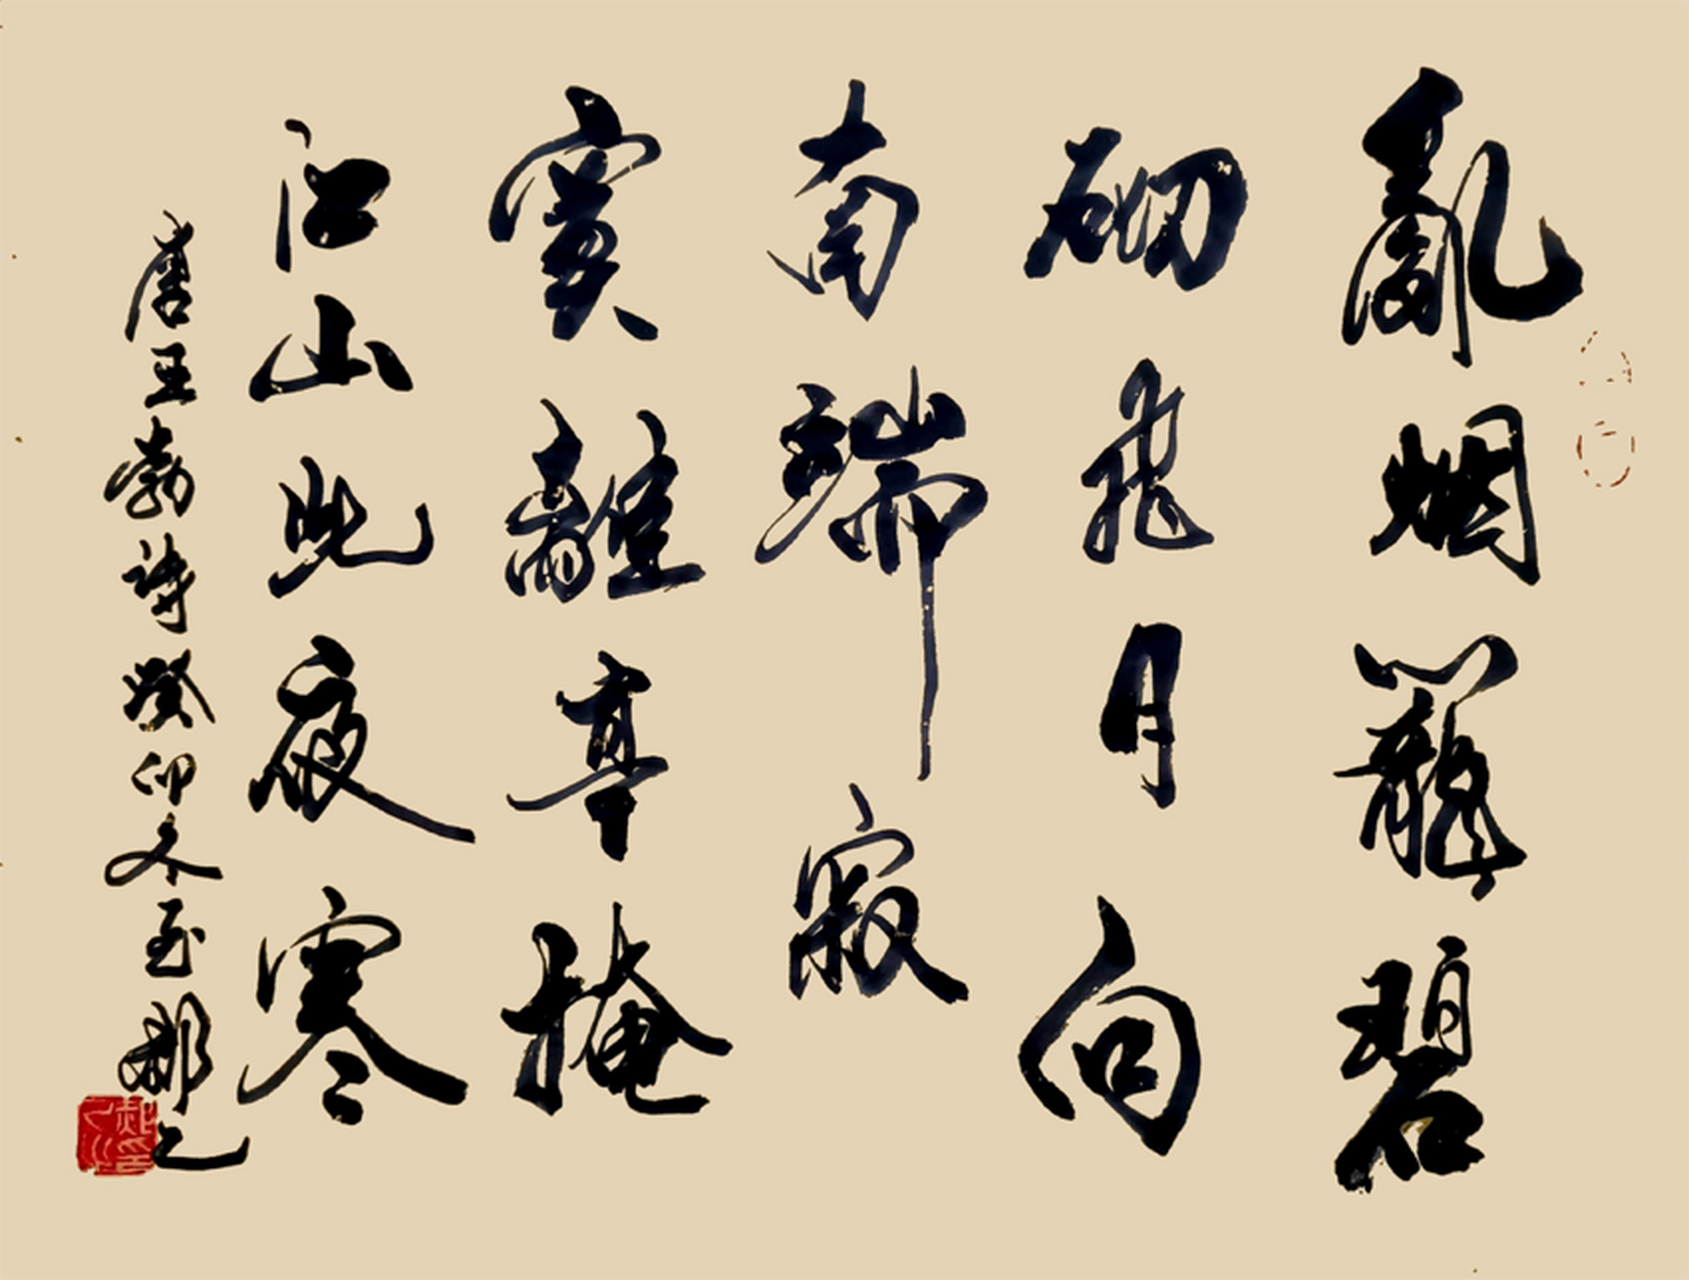 亂烟籠碧
砌飛月向
南端寂
寞離亭掩
江山此夜寒
唐王勃詩癸卯冬至郝